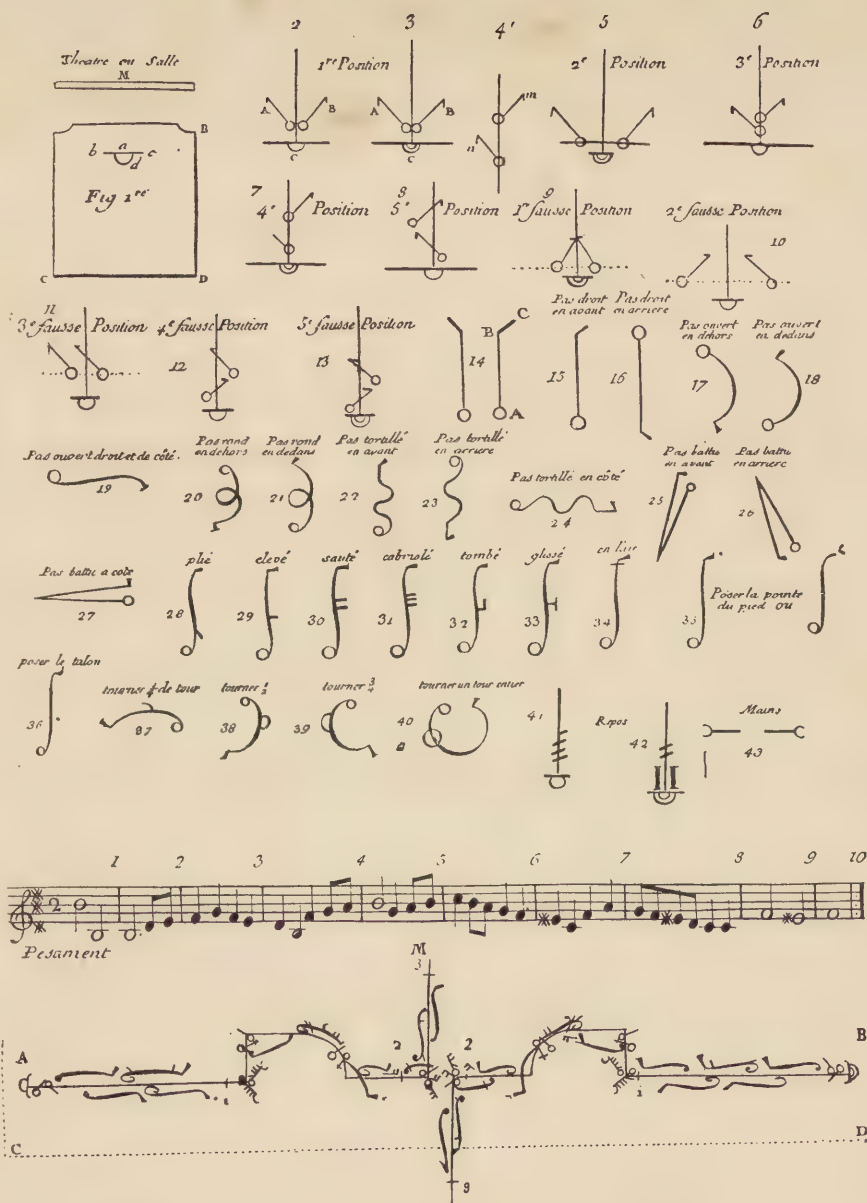 2 3 4' 5 6
Theatre ou Salle
M
1re Position
2e Position
3e Position
A B A B m
n
c c
B
a
b c
d
Fig 1re
C D
7 8 9
4e Position
5e Position
1re fausse Position
2e fausse Position
10
11
3e fausse Position
4e fausse Position
12
5e fausse Position
13
14
B C
A
Pas droit en avant
15
Pas droit en arriere
16
Pas ouvert en dehors
17
Pas ouvert en dedans
18
Pas ouvert droit et de côté.
19
Pas rond en dehors
20
Pas rond en dedans
21
Pas tortillé en avant
22
Pas tortillé en arriere
23
Pas tortillé en côté
24
Pas battu en avant
25
Pas battu en arriere
26
Pas battu a coté
27
plié
28
elevé
29
sauté
30
cabriolé
31
tombé
32
glissé
33
en l'air
34
35
Poser la pointe
du pied ou
poser le talon
36
tourner 1/4 de tour
37
tourner 1/2
38
tourner 3/4
39
tourner un tour entier
40
41
Repos
42
Mains
43
1 2 3 4 5 6 7 8 9 10
2
Pesament
M
3
A B
2 2
1 1
C D
3